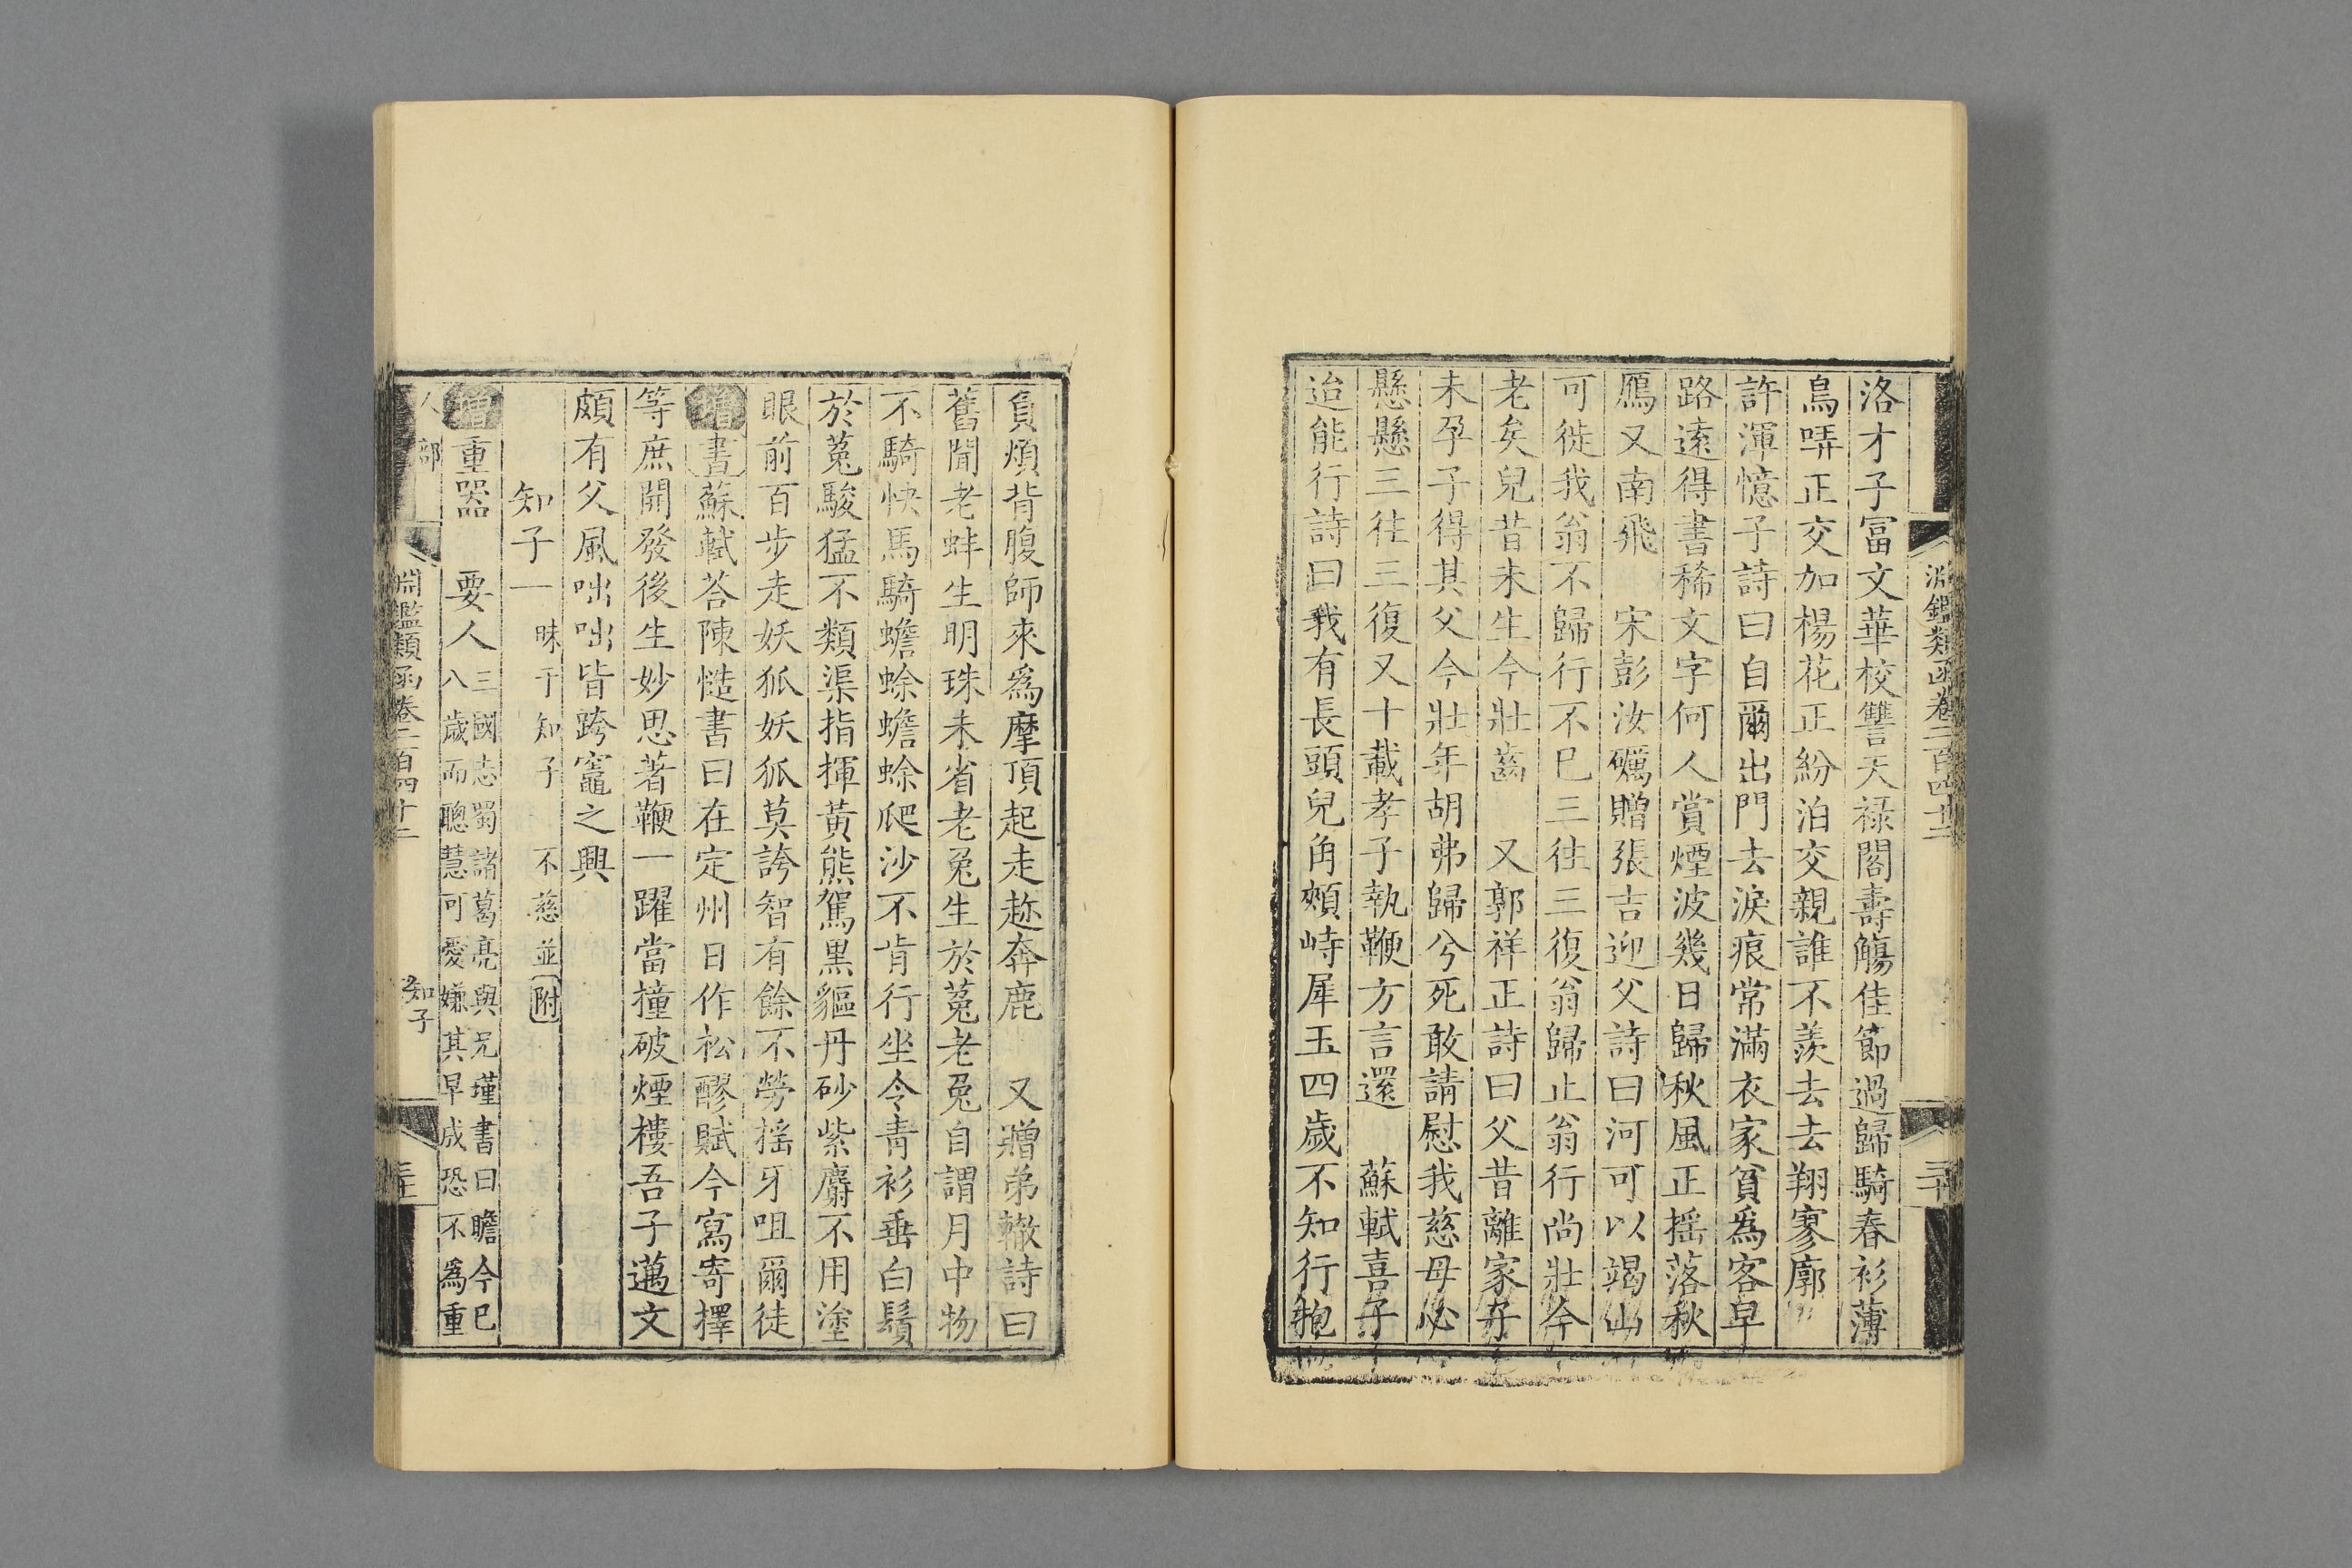 淵鑑類函卷二百四十二
三十
洛才子富文華校讐天祿閣壽觴佳節過歸騎春衫薄
鳥哢正交加楊花正紛泊交親誰不羨去去翔寥廓
許渾憶子詩曰自爾出門去淚痕常滿衣家貧爲客早
路遠得書稀文字何人賞煙波幾日歸秋風正搖落秋
鴈又南飛　宋彭汝礪贈張吉迎父詩曰河可以竭山
可徙我翁不歸行不巳三往三復翁歸止翁行尚壯今
老矣兒昔未生今壯齒　又郭祥正詩曰父昔離家子
未孕子得其父今壯年胡弗歸兮死敢請慰我慈母心
懸懸三往三復又十載孝子執鞭方言還　蘇軾喜子
迨能行詩曰我有長頭兒角頰峙犀玉四歲不知行抱
負煩背腹師來爲摩頂起走趂奔鹿　又贈弟轍詩曰
舊聞老蚌生明珠未省老兔生於菟老兔自謂月中物
不騎快馬騎蟾蜍蟾蜍爬沙不肯行坐令青衫垂白鬚
於菟駿猛不類渠指揮黃熊駕黑貙丹砂紫麝不用塗
眼前百步走妖狐妖狐莫誇智有餘不勞搖牙咀爾徒
增書蘇軾荅陳慥書曰在定州日作松醪賦今寫寄擇
等庶開發後生妙思著鞭一躍當撞破煙樓吾子邁文
頗有父風咄咄皆跨竈之興
知子一　昧于知子　不慈並附
增重器　要人三國志蜀諸葛亮與兄瑾書曰瞻今巳
八歲而聰慧可愛嫌其早成恐不爲重
人部
淵鑑類函卷二百四十二
知子